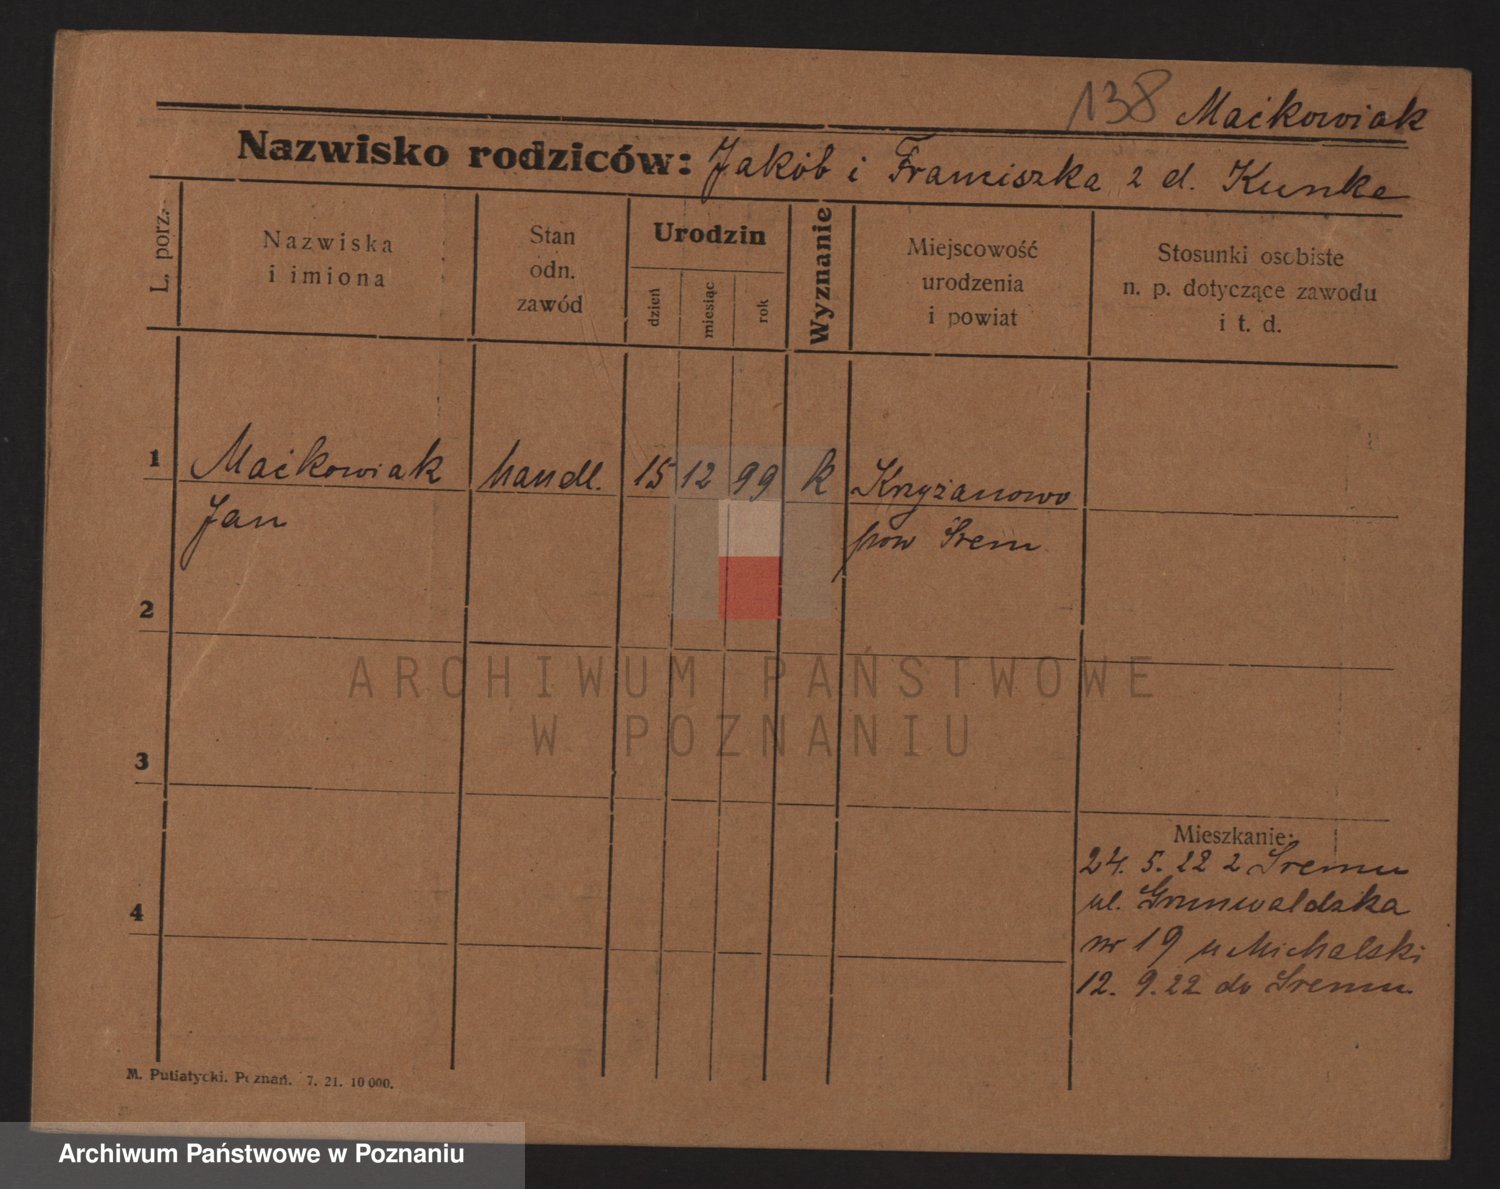 138 Maćkowiak
Nazwisko rodziców: Jakób i Franciszka z d. Kunke
L. porz.
Nazwiska
i imiona
Stan
odn.
zawód
Urodzin
dzień
miesiąc
rok
Wyznanie
Miejscowość
urodzenia
i powiat
Stosunki osobiste
n. p. dotyczące zawodu
i t. d.
1 Maćkowiak handl. 15 12 99 k Krzyżanowo
Jan pow Śrem
2
3
4
Mieszkanie:
24. 5. 22 z Śremu
ul. Grunwaldzka
nr 19 u Michalski
12. 9. 22 do Śremu
M. Putiatycki. Poznań. 7. 21. 10 000.
ARCHIWUM PAŃSTWOWE
W POZNANIU
Archiwum Państwowe w Poznaniu